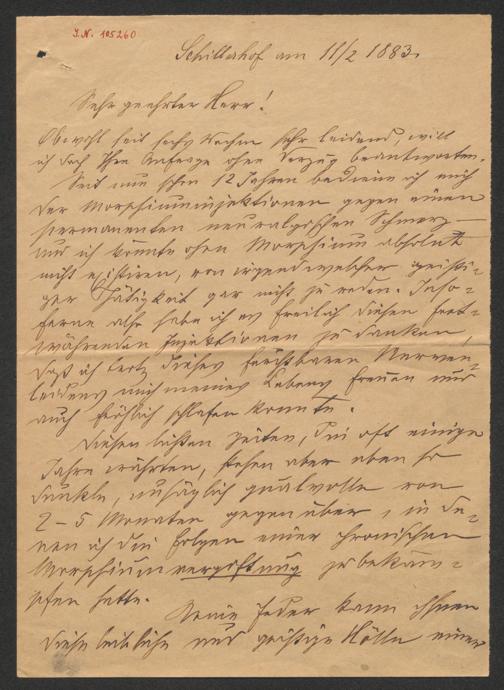 I.N. 105260
Schillerhof am 11/2 1883.
Sehr geehrter Herr!
Obwohl seit sechs Wochen sehr leidend, will
ich doch Ihre Anfrage ohne Verzug beantworten.
Seit nun schon 12 Jahren bediene ich mich
der Morphiuminjektionen gegen einen
permanenten neuralgischen Schmerz
und ich könnte ohne Morphium absolut
nicht existiren, von irgendwelcher geisti-
ger Thätigkeit gar nicht zu reden. Inso-
ferne also habe ich es freilich diesen fort-
währenden Injektionen zu danken,
daß ich trotz dieses furchtbaren Nerven-
leidens mich meines Lebens freuen und
auch fröhlich schaffen konnte.
Diesen lichten Zeiten, die oft einige
Jahre währten, stehen aber eben so
dunkle, unsäglich qualvolle von
2-5 Monaten gegenüber, in de-
nen ich die Folgen einer chronischen
Morphiumvergiftung zu bekäm-
pfen hatte.
Keine Feder kann Ihnen
diese leibliche und geistige Hölle eines